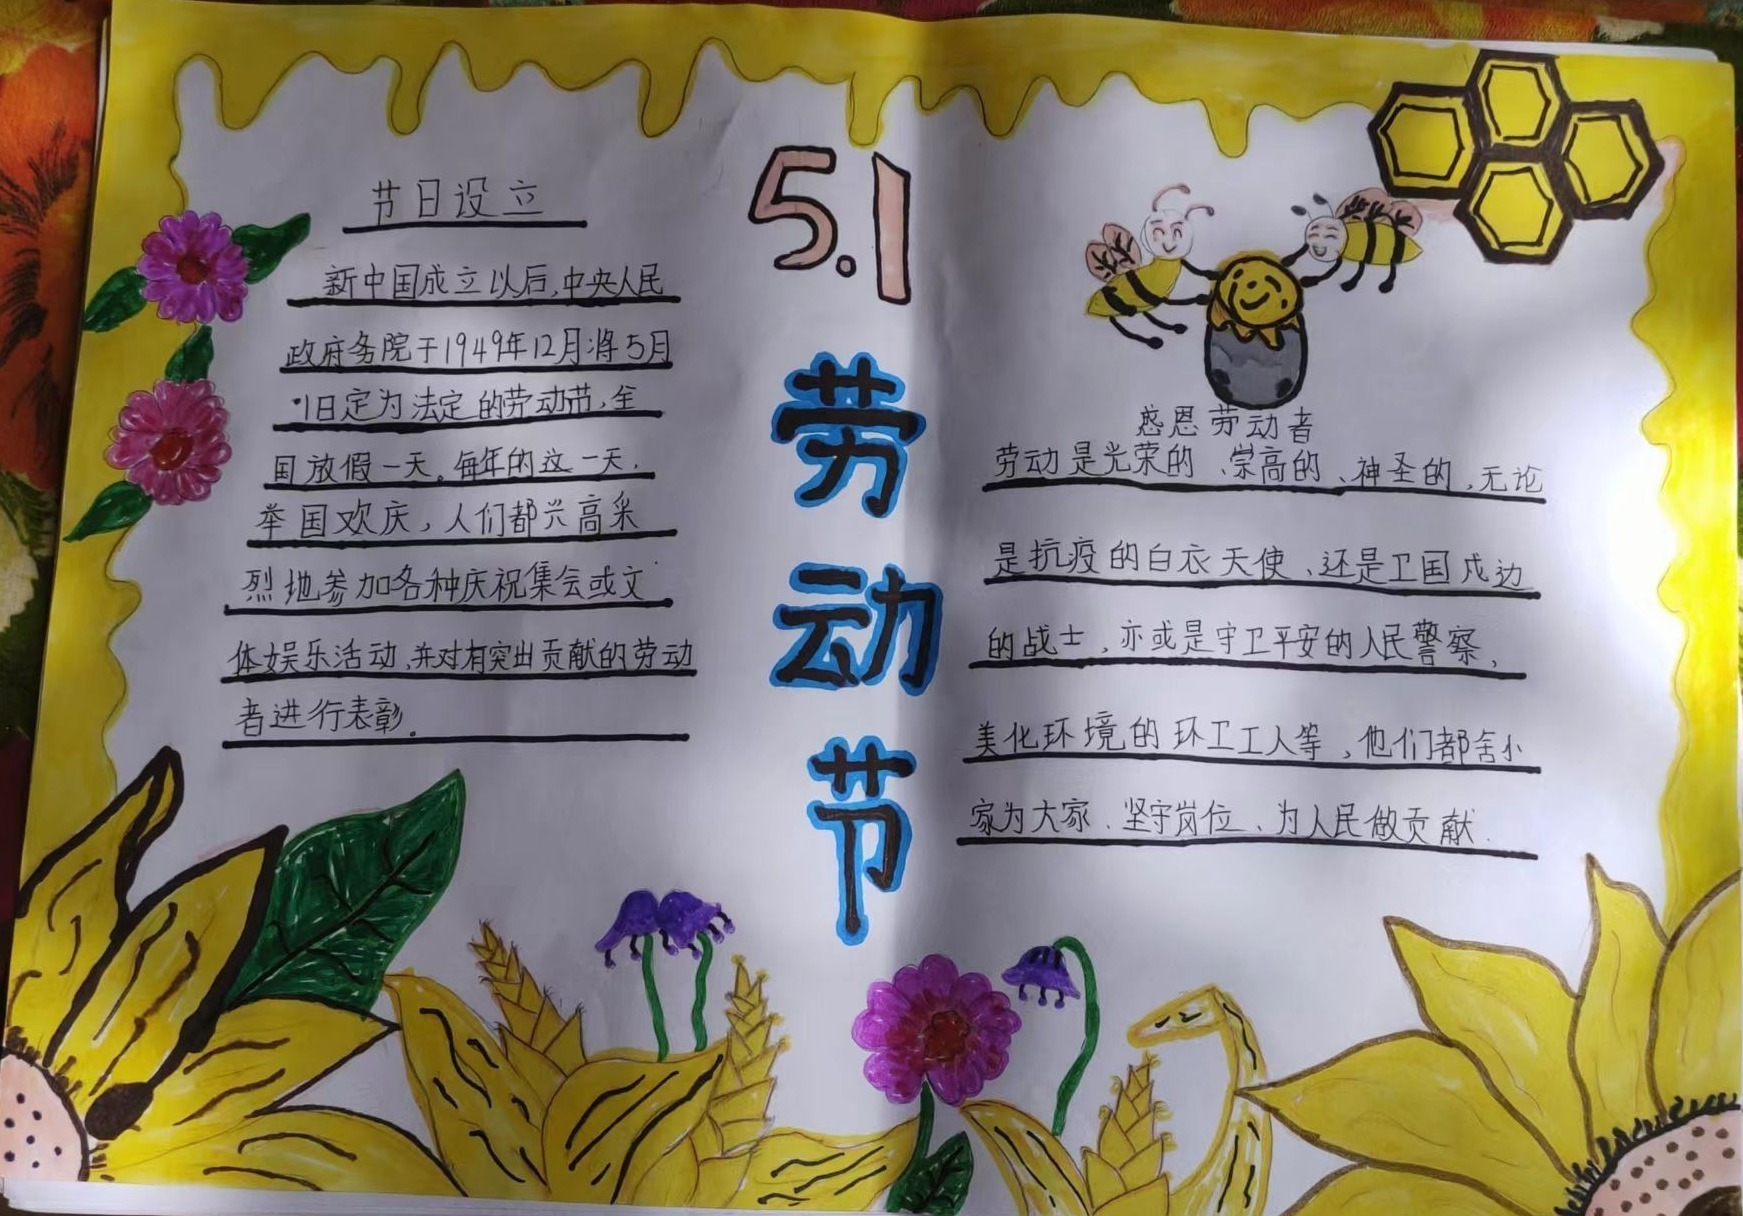 节日设立
新中国成立以后,中央人民
政府务院于1949年12月将5月
1日定为法定的劳动节,全
国放假一天。每年的这一天,
举国欢庆,人们都兴高采
烈地参加各种庆祝集会或文
体娱乐活动,并对有突出贡献的劳动
者进行表彰。
5.1
劳
动
节
感恩劳动者
劳动是光荣的、崇高的、神圣的,无论
是抗疫的白衣天使、还是卫国戍边
的战士,亦或是守卫平安的人民警察,
美化环境的环卫工人等,他们都舍小
家为大家、坚守岗位、为人民做贡献.